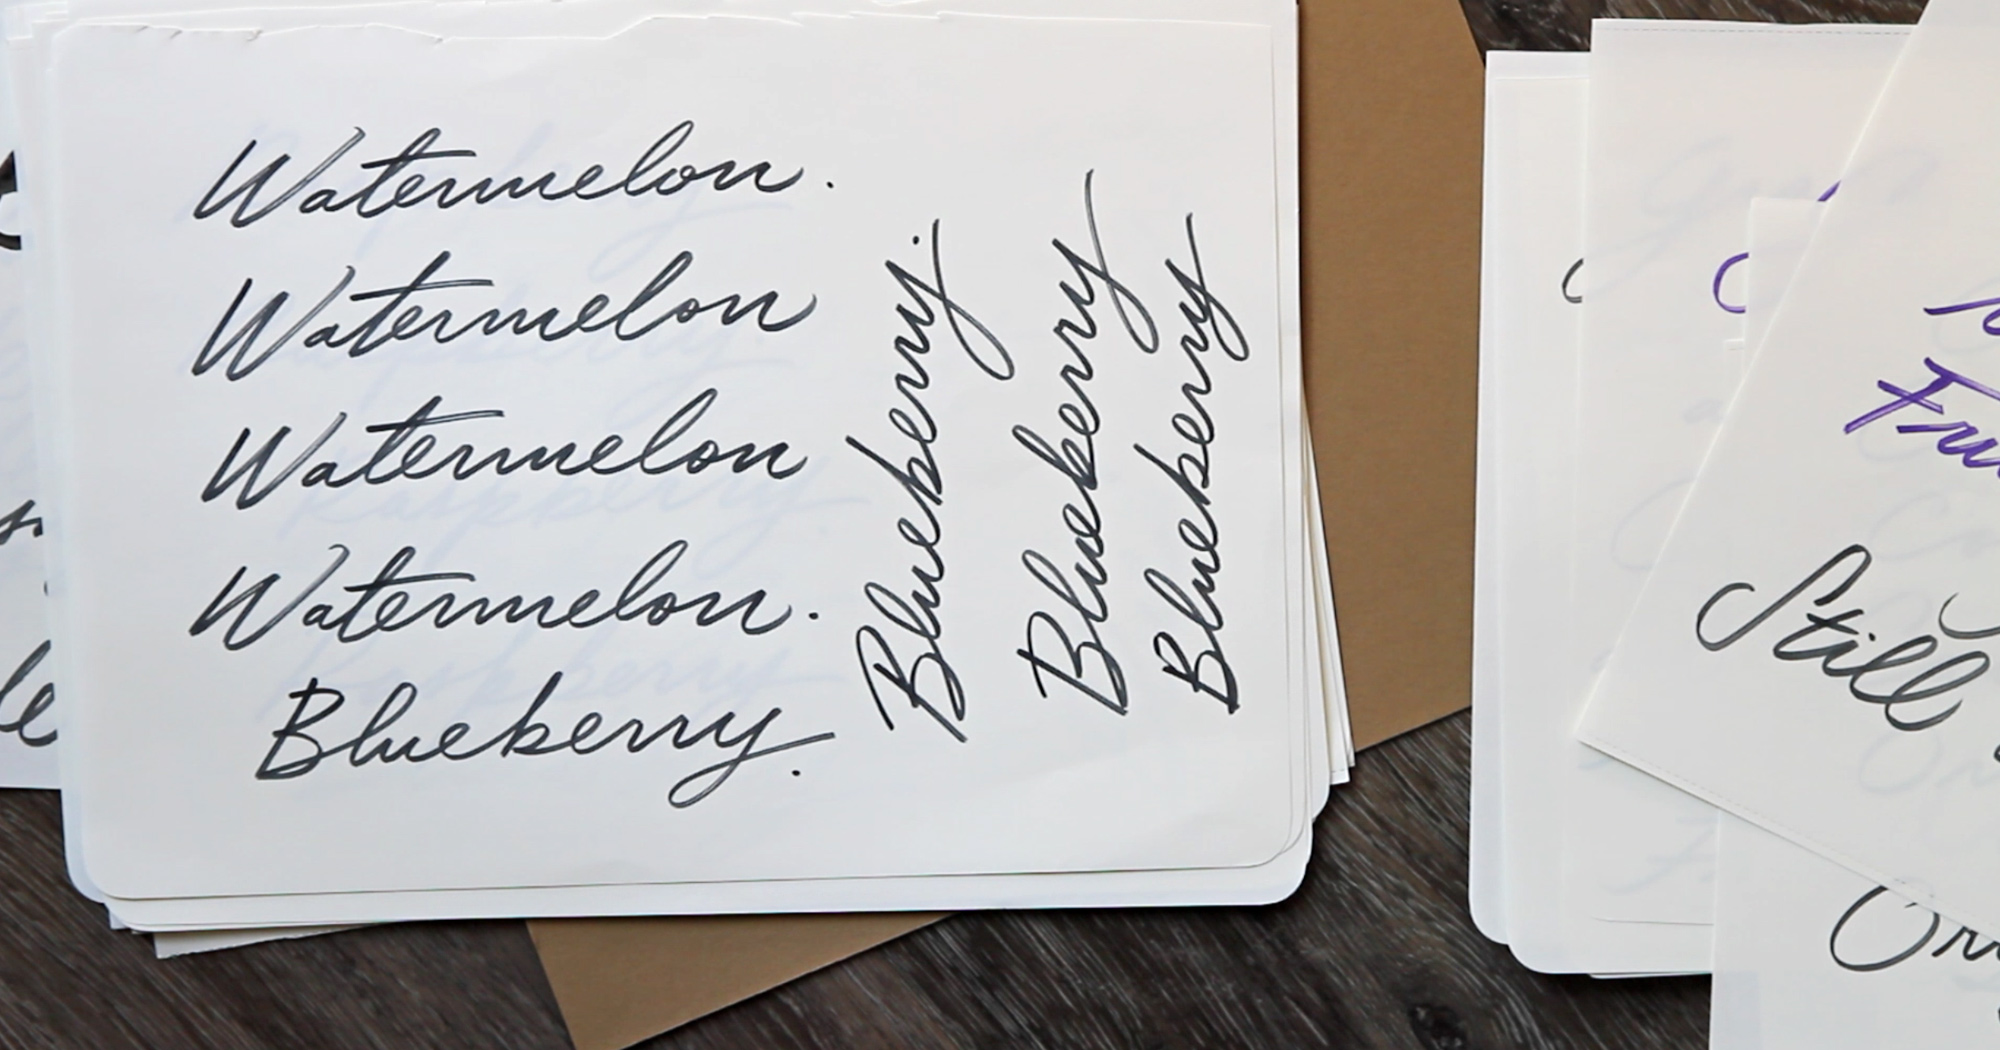 Watermelon.
Watermelon
Watermelon
Watermelon.
Blueberry.
Blueberry.
Blueberry
Blueberry
Still